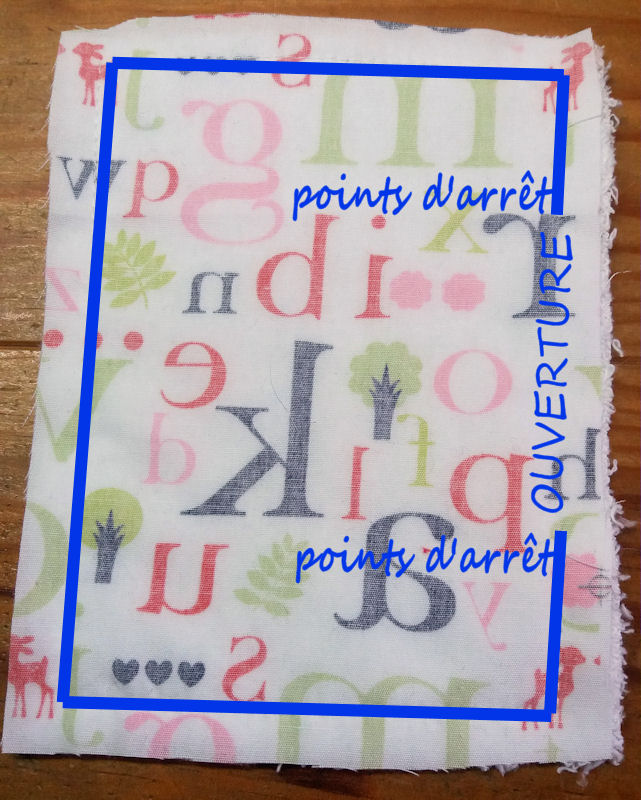 points d'arrêt
OUVERTURE
points d'arrêt